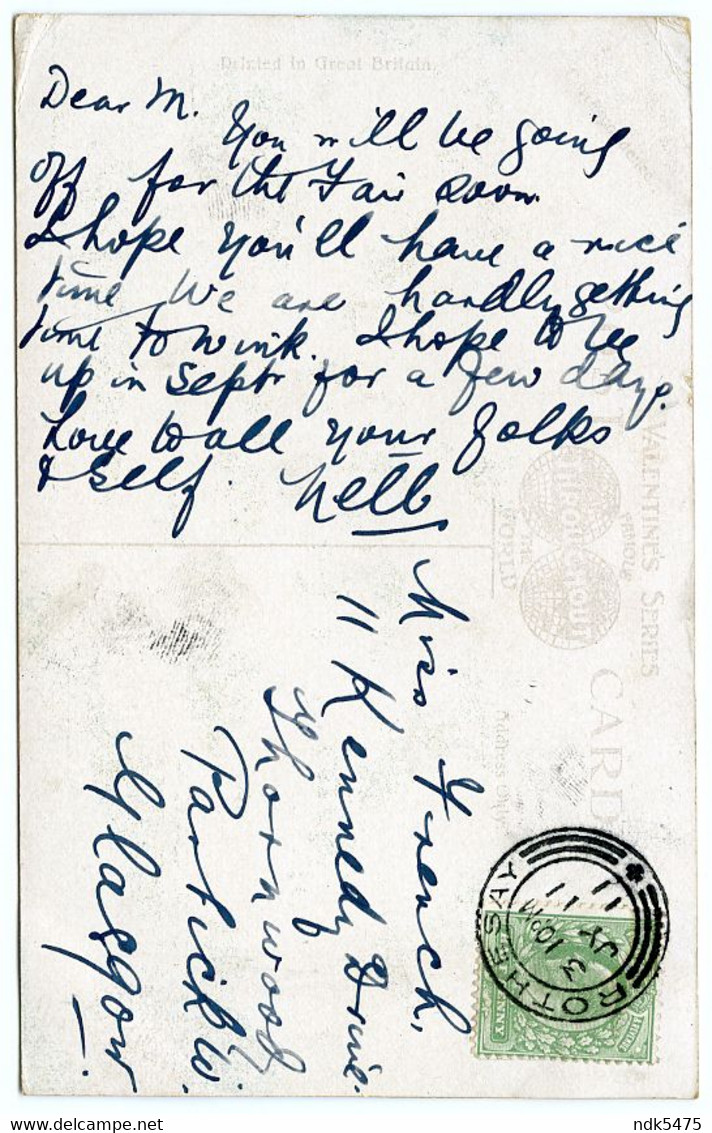 Printed in Great Britain.
Dear M.
You will be going
off for the Fair soon.
I hope you'll have a nice
time We are hardly getting
time to wink. I hope to be
up in Septr for a few days.
Love to all your folks
& self. Nell
Miss French,
11 Kennedy Drive.
Thornwood
Partick W.
Glasgow
VALENTINE'S SERIES
FAMOUS
THROUGHOUT
THE
WORLD
CARD
Address Only
ROTHESAY
10 PM
3
JY
11
ndk5475